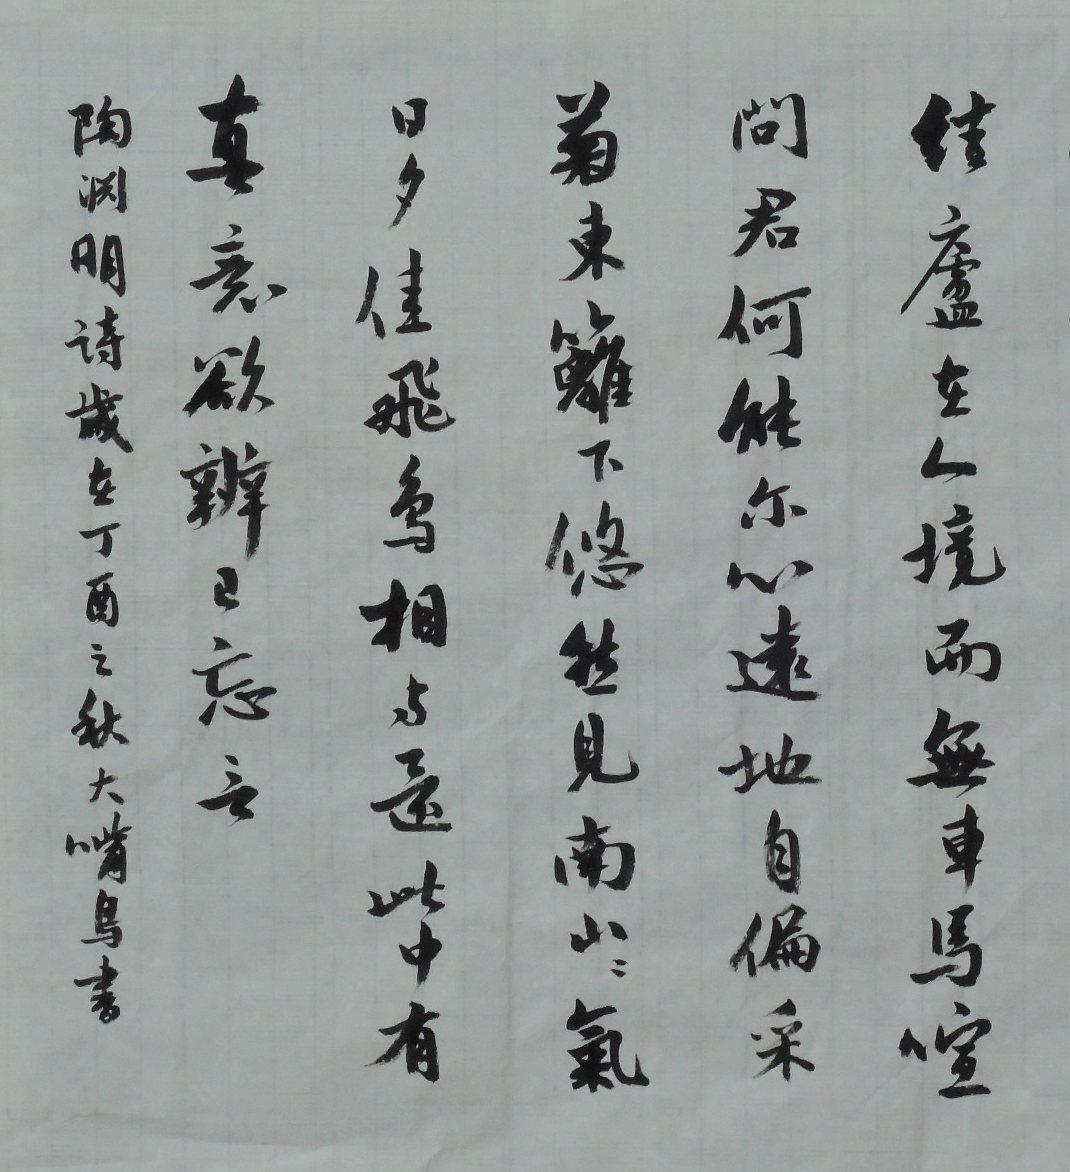 結廬在人境而無車馬喧
問君何能尔心遠地自偏采
菊東籬下悠然見南山山氣
日夕佳飛鳥相与還此中有
真意欲辨已忘言
陶渊明詩歲在丁酉之秋大嘴鳥書